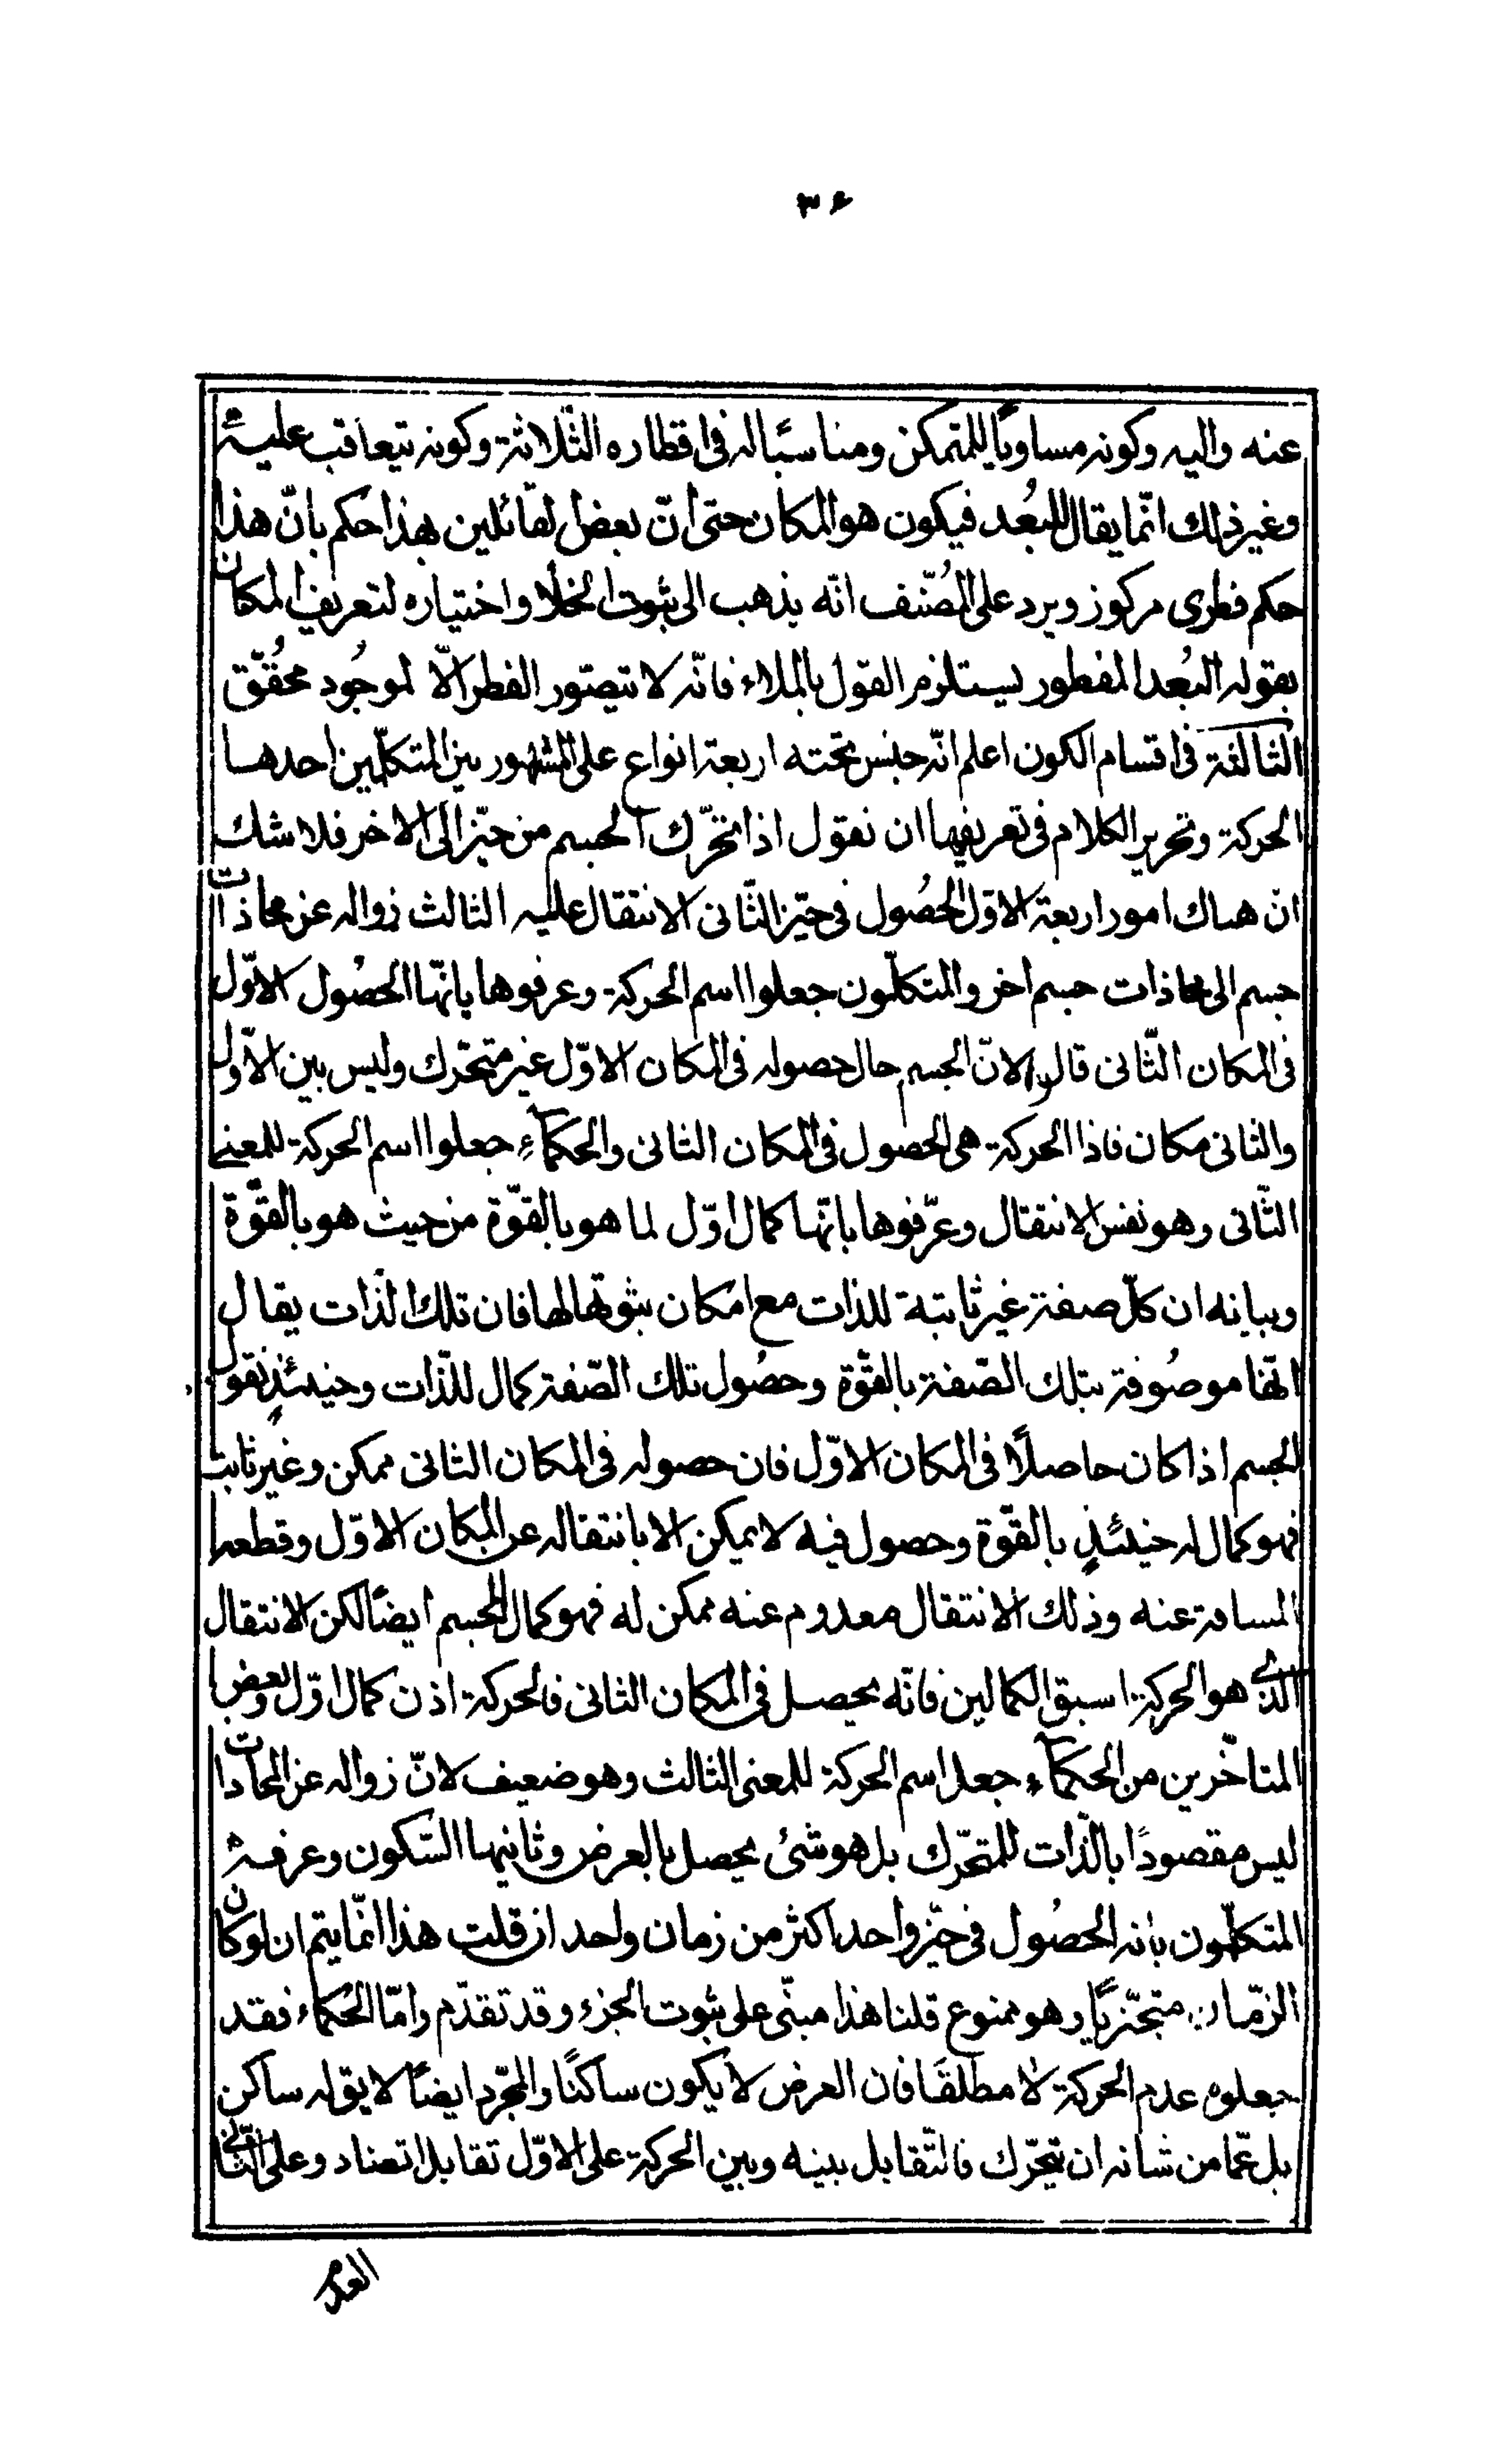 ٣۶
عنه واليه وكونه مساويًا للمتمكن ومناسبًا له فى اقطاره الثّلاثة وكونه يتعاقب عليه
وغير ذلك انّما يقال للبُعد فيكون هو المكان حتى انّ بعض لقائلين بهذا حكم بانّ هذا
حكم فطرى مركوز ويرد على المُصّنف انّه يذهب الى ثبوت الخلأ واختياره لتعريف المكان
بقوله البُعد المفطور يستلزم القول بالملاء فانّه لا يتصّور الفطر الّا لموجُود محُقّق
الثالثة فى اقسام الكون اعلم انّه جنس تحته اربعة انواع على المشهور بين المتكلّمين احدها
الحركة وتحرير الكلام فى تعريفها ان نقول اذا تحرّك الجسم من حيّز الى الاخر فلا شك
ان هناك امور اربعة الاوّل الحُصول فى حيّز الثّانى الانتقال عليه الثالث زواله عن محاذات
جسم الى محاذات جسم اخر والمتكلّمون جعلوا اسم الحركة وعرفوها بانّها الحصُول الاوّل
فى المكان الثّانى قالوا لانّ الجسم حال حصوله فى المكان الاوّل غير متحّرك وليس بين الاوّل
والثانى مكان فاذا الحركة هى الحصول فى المكان الثانى والحكمآء جعلوا اسم الحركة للمعنى
الثّانى وهو نفس الانتقال وعرّفوها بانّها كمال اوّل لما هو بالقوّة من حيث هو بالقوّة
وبيانه ان كلّ صفة غير ثابتة للذات مع امكان ثبوتها لها فان تلك الذات يقال
انّها موصُوفة بتلك الصّفة بالقوّة وحصُول تلك الصّفة كمال للذّات وحينئذٍ نقول
الجسم اذا كان حاصلًا فى المكان الاوّل فان حصوله فى المكان الثانى ممكن وغير ثابت
فهو كمال له حينئذٍ بالقوّة وحصول فيه لا يمكن الا بانتقاله عن المكان الاوّل وقطعه
المسافة عنه وذلك الانتقال معدوم عنه ممكن له فهو كمال للجسم ايضًا لكن الانتقال
الذى هو الحركة اسبق الكمالين فانّه يحصل فى المكان الثانى فالحركة اذن كمال اوّل وبعض
المتاخّرين من الحكمآء جعل اسم الحركة للمعنى الثالث وهو ضعيف لانّ زواله عن المحاذات
ليس مقصودًا بالذّات للمتحّرك بل هو شئ يحصل بالعرض وثانيها السّكون وعرفه
المتكلّمون بانه الحصُول فى حيّز واحد اكثر من زمان واحد ان قلت هذا انّما يتم ان لو كان
الزّمان متجّزيًا وهو ممنوع قلنا هذا مبنّى على ثبوت الجزء وقد تقدّم وامّا الحُكماء فقد
جعلوه عدم الحركة لا مطلقًا فان العرض لا يكون ساكنًا والمجّرد ايضًا لا يق له ساكن
بل عمّا من شانه ان يتحّرك فالتّقابل بينه وبين الحركة على الاوّل تقابل التضاد وعلى الثّانى
العدم